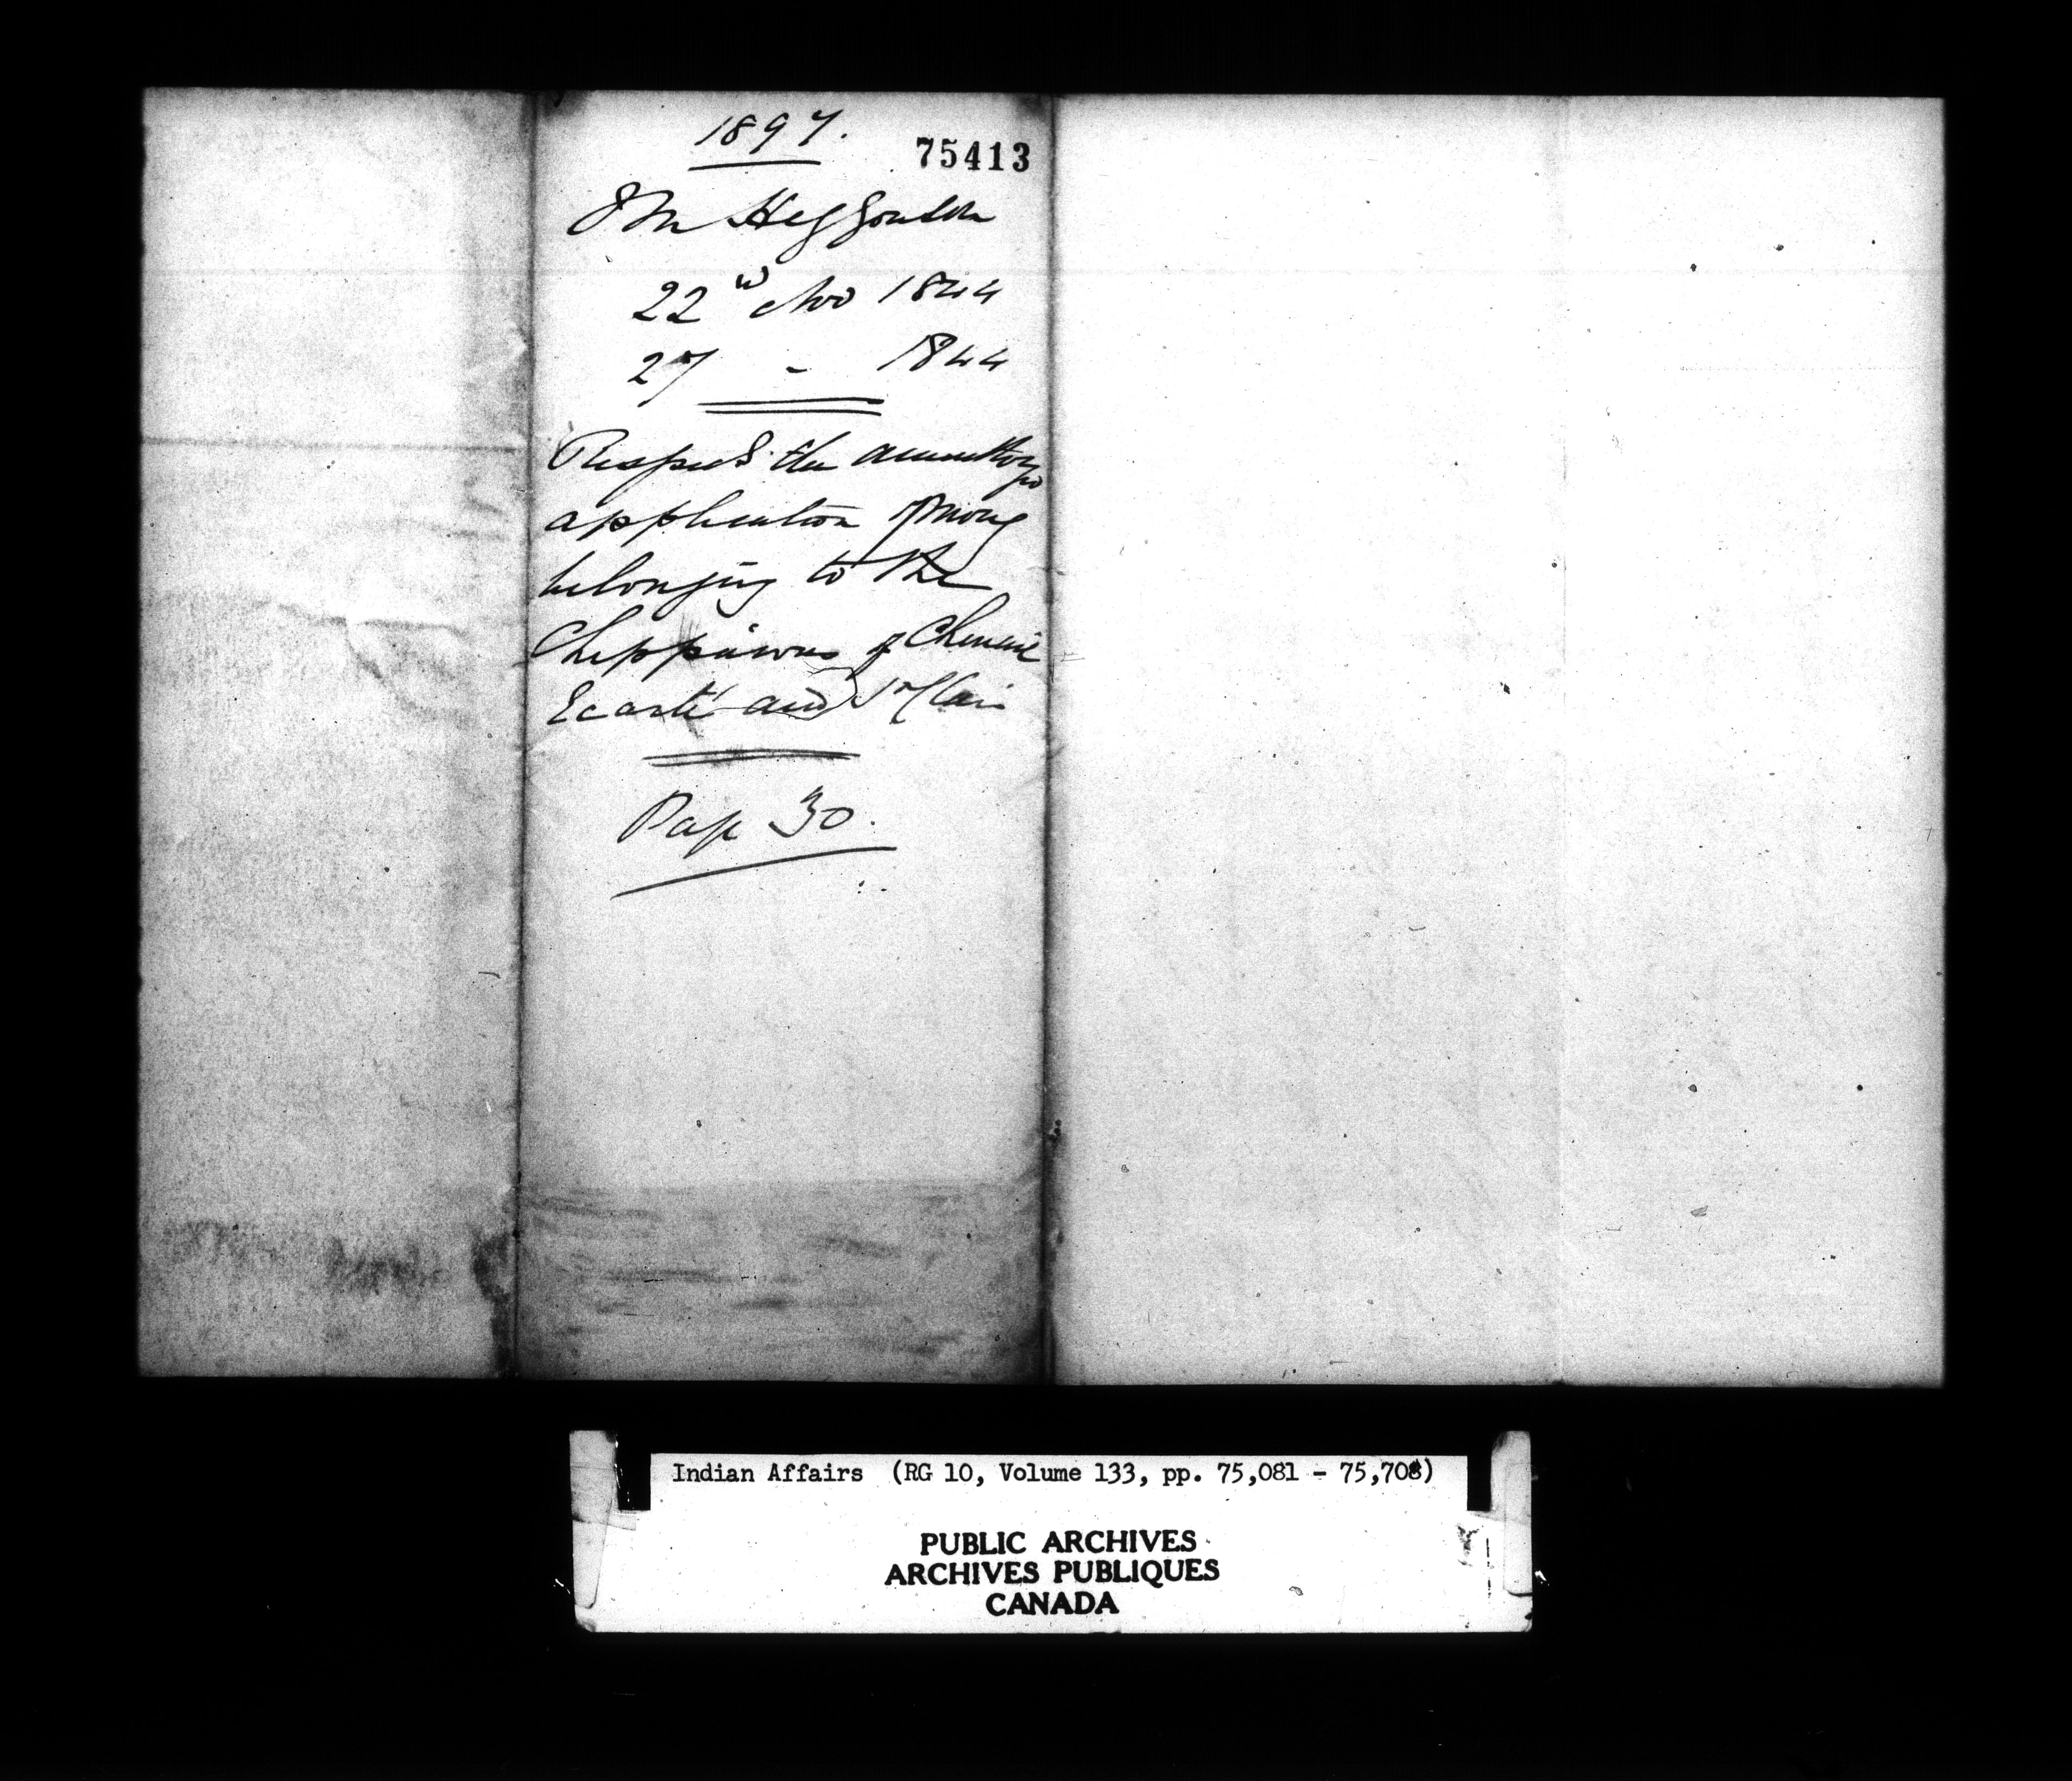 1897.
75413
J M Higginson
22nd Nov 1844
27 - 1844
Respect the amount &
application of money
belonging to the
Chippewas of Chenail
Ecarté and St Clair
Page 30.
Indian Affairs (RG 10, Volume 133, pp. 75,081 - 75,708)
PUBLIC ARCHIVES
ARCHIVES PUBLIQUES
CANADA